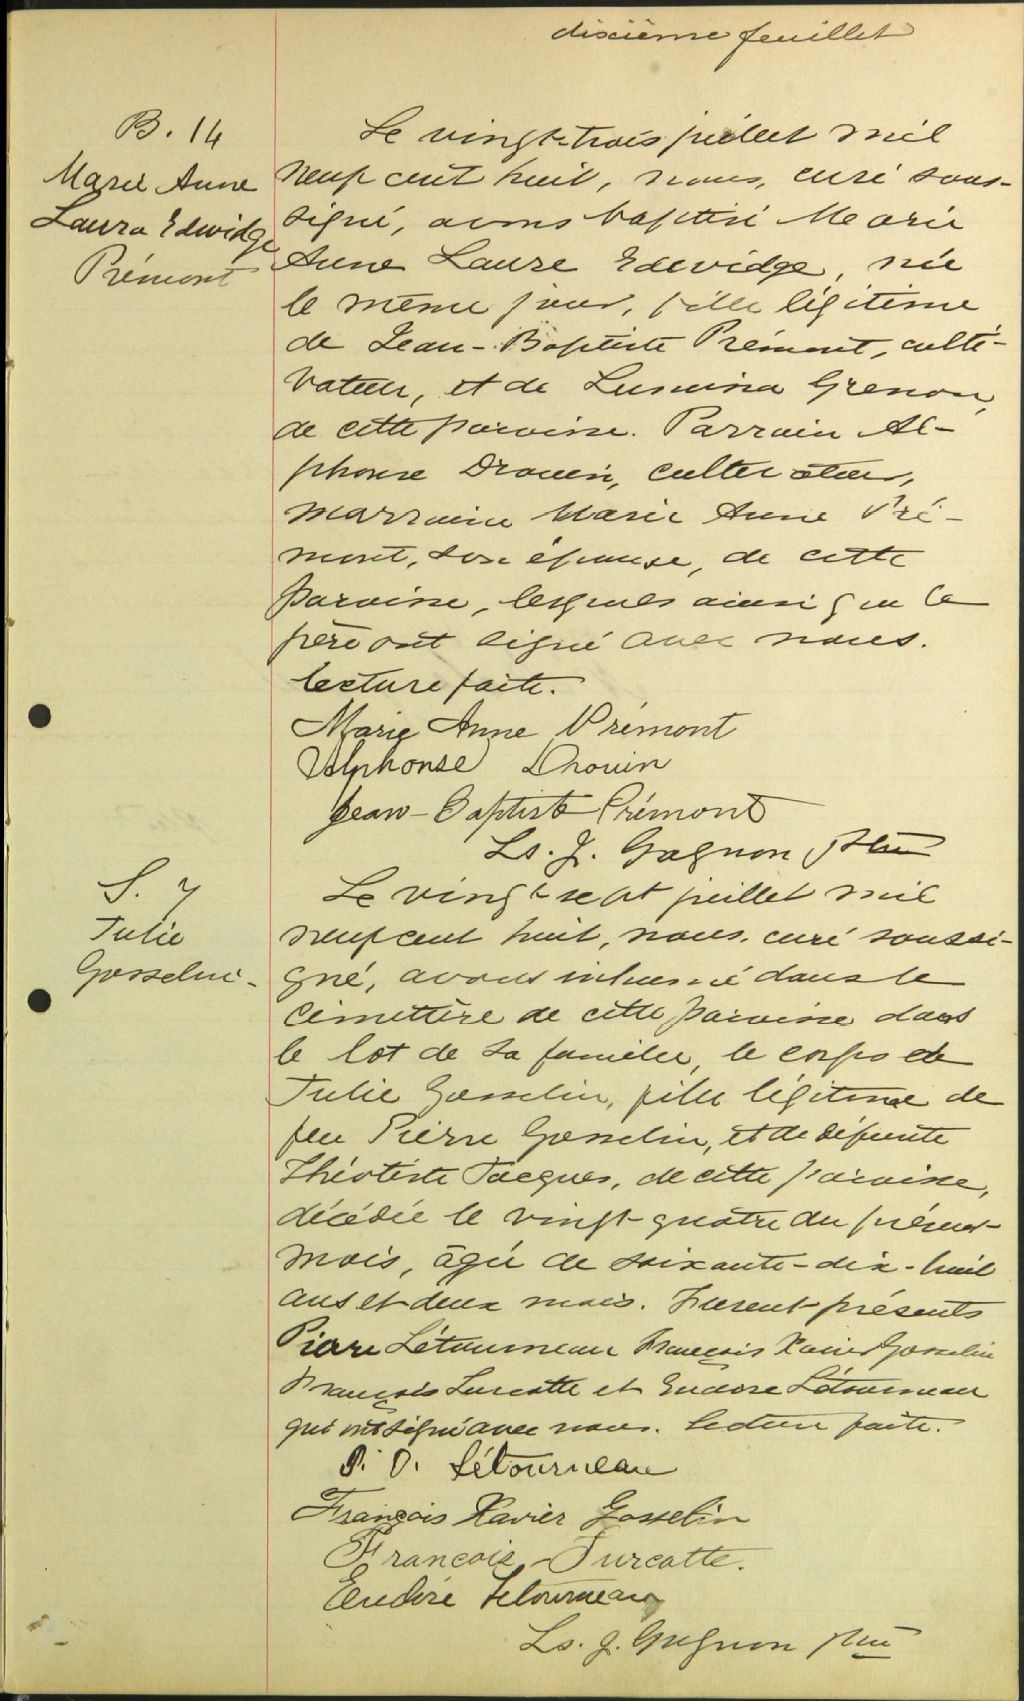 dixième feuillet
B. 14
Marie Anne
Laura Edwidge
Prémont
Le vingt-trois juillet mil
neuf cent huit, nous, curé sous-
signé, avons baptisé Marie
Anne Laure Edwidge, née
le même jour, fille légitime
de Jean-Baptiste Prémont, culti-
vateur, et de Lumina Grenon,
de cette paroisse. Parrain Al-
phonse Drouin, cultivateur,
marraine Marie Anne Pré-
mont, son épouse, de cette
paroisse, lesquels ainsi que le
père ont signé avec nous.
lecture faite.
Marie Anne Prémont
Alphonse Drouin
Jean-Baptiste Prémont
Ls. J. Gagnon ptre
S. 7
Julie
Gosselin.
Le vingt-sept juillet mil
neuf cent huit, nous, curé soussi-
gné, avons inhumé dans le
cimetière de cette paroisse dans
le lot de sa famille, le corps de
Julie Gosselin, fille légitime de
feu Pierre Gosselin, et de défunte
Théotiste Jacques, de cette paroisse,
décédée le vingt-quatre du présent
mois, âgée de soixante-dix-huit
ans et deux mois. Furent présents
Pierre Létourneau François Xavier Gosselin
François Turcotte et Eudore Létourneau
qui ont signé avec nous. Lecture faite.
P. O. Létourneau
François Xavier Gosselin
François Turcotte.
Eudore Létourneau
Ls. J. Gagnon ptre